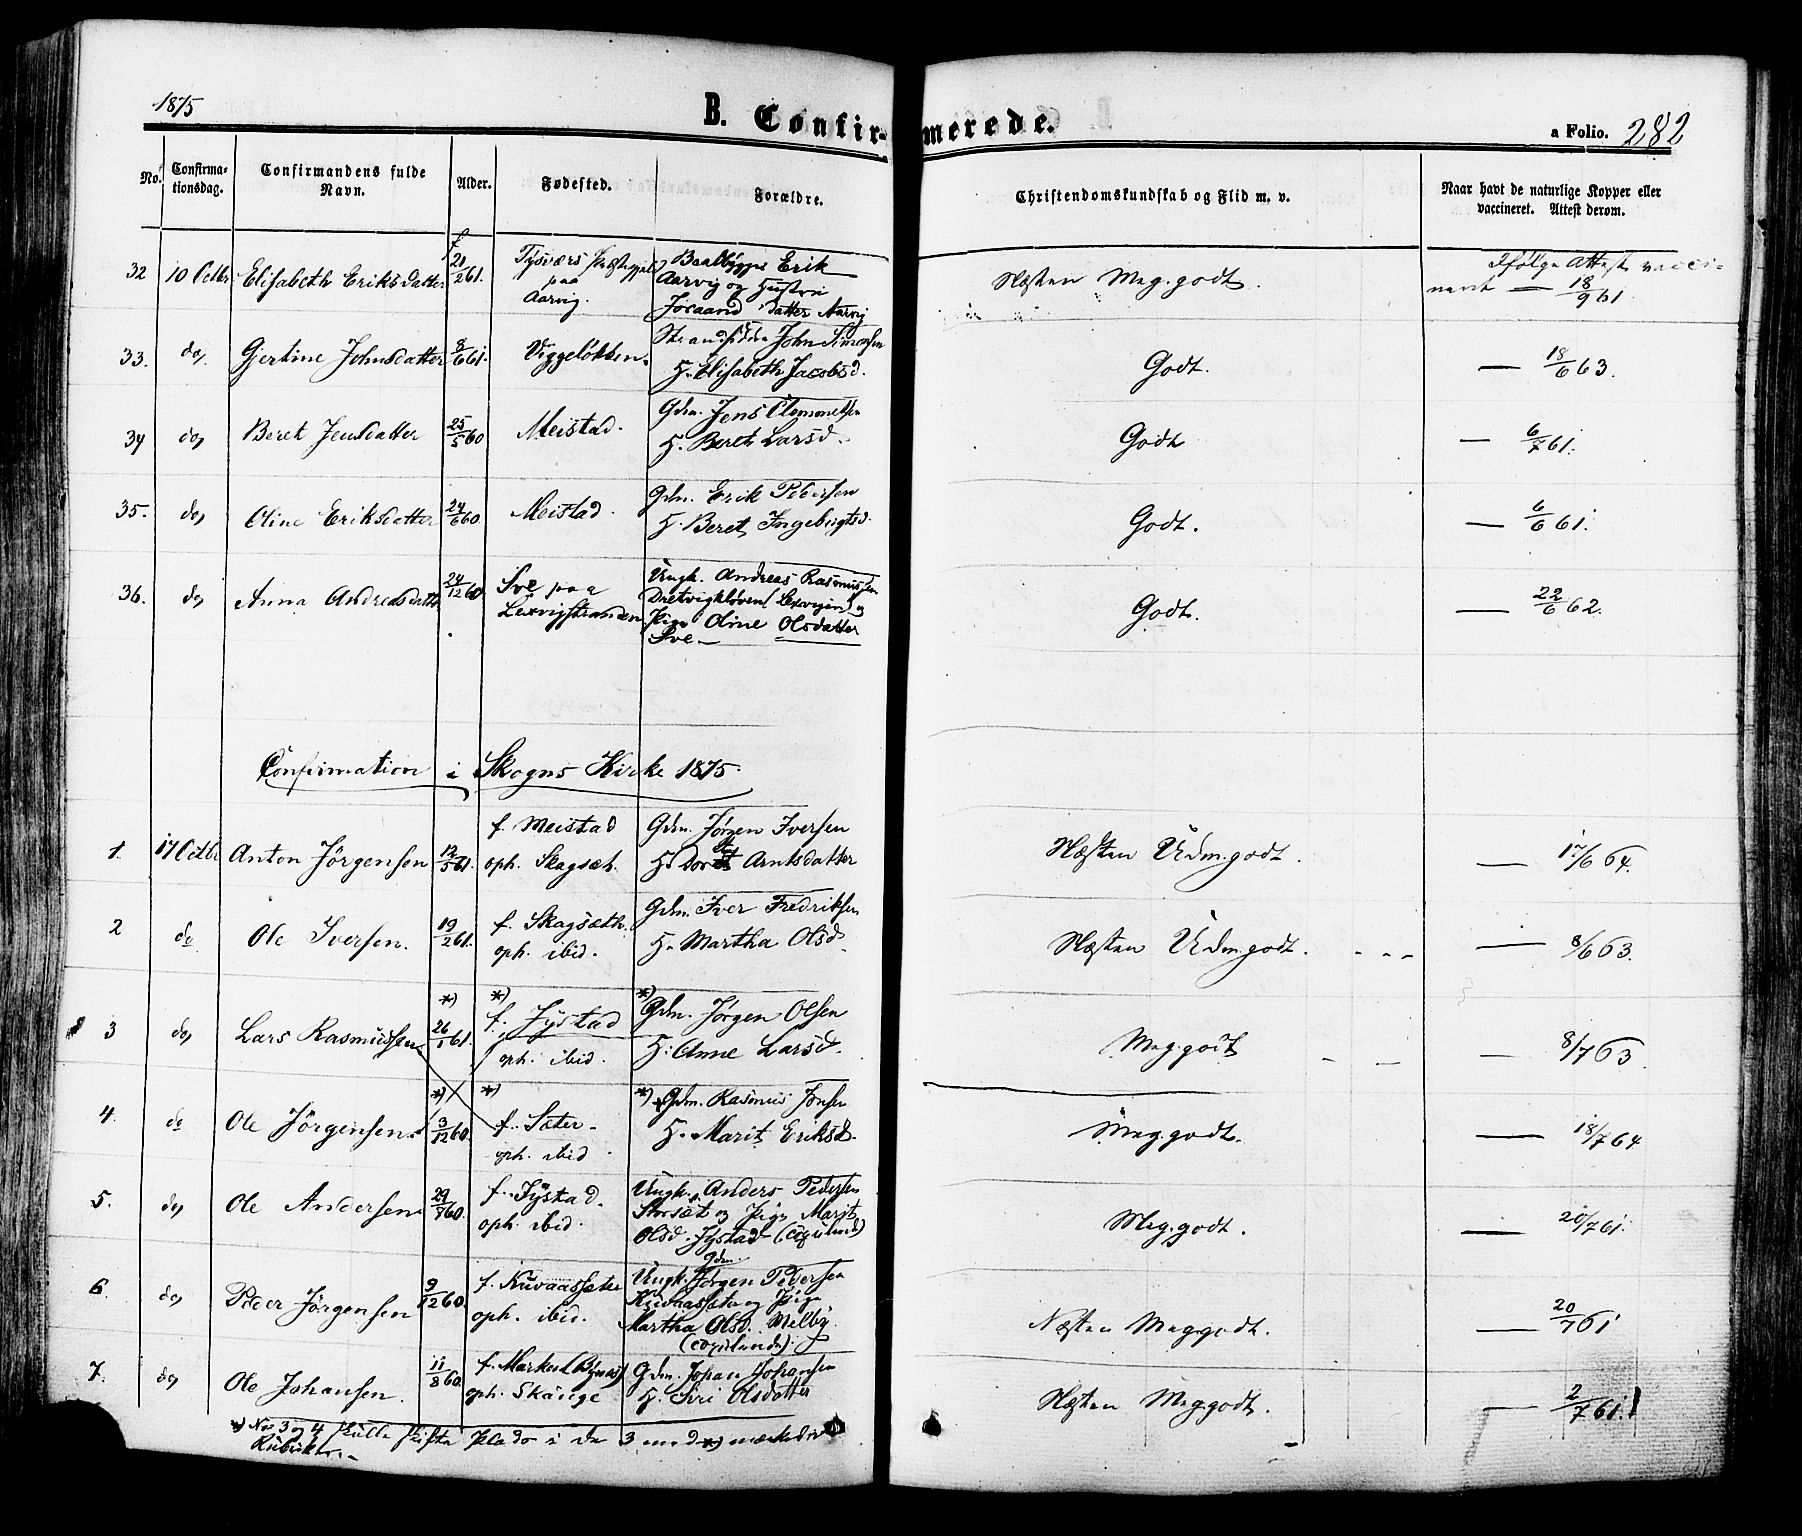 1875
B. Confirmerede.
a Folio. 282
No. Confirmationsdag. Confirmandens fulde Navn. Alder. Fødested. Forældre. Christendomskundskab og Flid m. v. Naar havt de naturlige Kopper eller vaccineret. Attest derom.
32 10 Octbr Elisabeth Eriksdatter f 21/2 61. Tysværs Præstegjeld paa Aarvig. Erik Aarvig og Hustru datter Aarvig Næsten Meg. godt. Ifølge Attest vaccineret — 18/9 61
33. do, Gjertine Johnsdatter 8/6 61. Viggeløkken. Strandsidder John Simonsen H. Elisabeth Jacobsd. Godt. — 18/6 63.
34 do, Beret Jensdatter 25/5 60 Meistad. Gdm. Jens Clemmetsen H. Beret Larsd. Godt — 6/7 61.
35. do, Oline Eriksdatter 24/6 60 Meistad. Gdm. Erik Pedersen H. Beret Ingebrigtsd. Godt. — 6/6 61.
36. do, Anna Andreasdatter 24/12 60 Sve paa Lexvigstranden Ungk. Andreas Rasmussen (Lexvigen) og Pige Oline Olsdatter Sve — Godt. — 22/6 62.
Confirmation i Skogns Kirke 1875.
1. 17 Octbr Anton Jørgensen 12/5 61. f. Meistad oph. Skagsæt. Gdm. Jørgen Iversen H. Arntsdatter Næsten Udm. godt. — 17/6 64.
2 do Ole Iversen. 19/2 61. f. Skagsæth. oph. ibid. Gdm. Iver Fredriksen H. Martha Olsd. Næsten Udm. godt. — 8/6 63.
3 do, Lars Rasmussen *) 26/1 61. *) f. Jystad oph. ibid. *) Gdm. Jørgen Olsen H. Anne Larsd. Meg. godt — 8/7 63
4. do Ole Jörgensen. *) 3/12 60. *) f. Sæter. oph. ibid. *) Gdm. Rasmus Jonsen H. Marit Eriksd. Meg. godt. — 18/7 64
5. do, Ole Andersen 29/7 60. f. Jystad. oph. ibid. Ungk. Anders Pedersen Storsæt og Pige Marit Olsd. Jystad (copulerede) Meg. godt. — 20/7 61.
6. do, Peder Jørgensen 9/12 60. f. Kuvaassæter oph. ibid. Ungk. Jørgen Pedersen Kuvaassæter og Pige Martha Olsd. Melby. (copulerede). Næsten Meg. godt. — 20/7 61
7. do, Ole Johansen. 11/8 60. f. (Bynes) oph. Skånge Gdm. Johan Johansen H. Siri Olsdatter Næsten Meg. godt. — 2/7 61.
*) No 3 og 4 skulle skifte Plads i de 3 med *) mærkede Rubrikker.